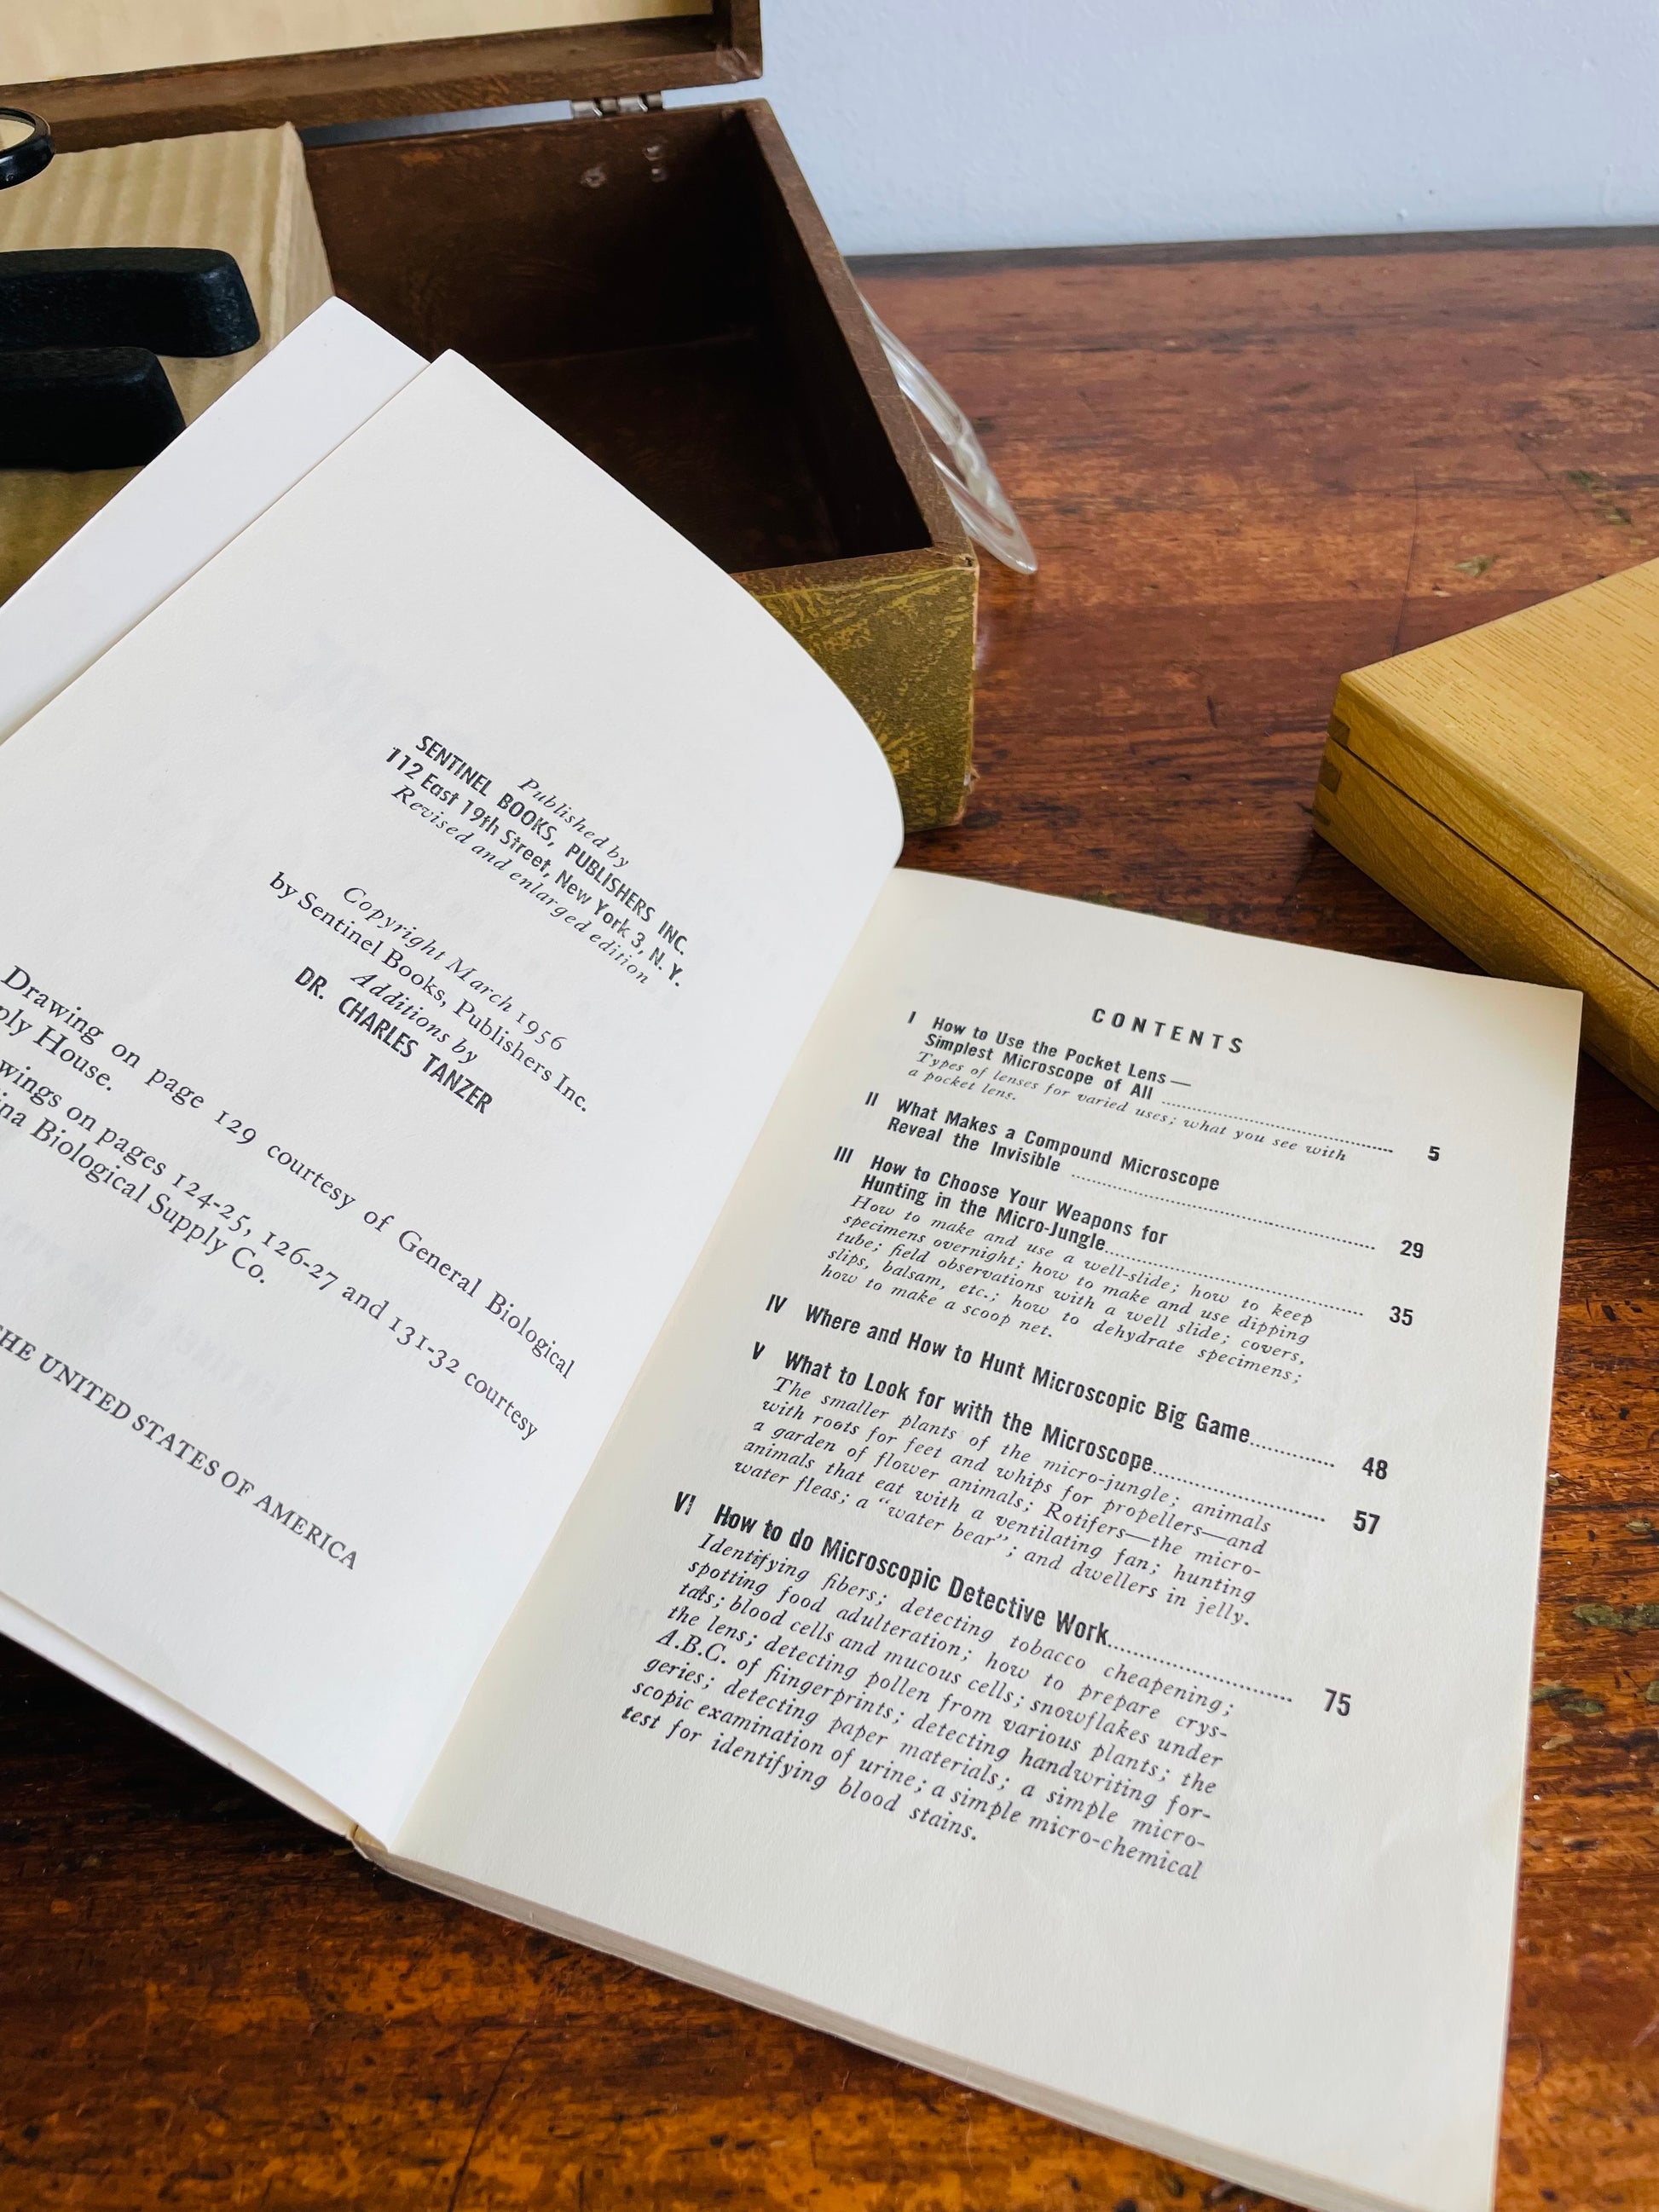 Published by
SENTINEL BOOKS, PUBLISHERS INC.
112 East 19th Street, New York 3, N. Y.
Revised and enlarged edition
Copyright March 1956
by Sentinel Books, Publishers Inc.
Additions by
DR. CHARLES TANZER
Drawing on page 129 courtesy of General Biological
House.
on pages 124-25, 126-27 and 131-32 courtesy
Biological Supply Co.
THE UNITED STATES OF AMERICA
CONTENTS
I How to Use the Pocket Lens—
Simplest Microscope of All ........ 5
Types of lenses for varied uses; what you see with
a pocket lens.
II What Makes a Compound Microscope
Reveal the Invisible ........ 29
III How to Choose Your Weapons for
Hunting in the Micro-Jungle........ 35
How to make and use a well-slide; how to keep
specimens overnight; how to make and use dipping
tube; field observations with a well slide; covers,
slips, balsam, etc.; how to dehydrate specimens;
how to make a scoop net.
IV Where and How to Hunt Microscopic Big Game........ 48
V What to Look for with the Microscope........ 57
The smaller plants of the micro-jungle; animals
with roots for feet and whips for propellers—and
a garden of flower animals; Rotifers—the micro-
animals that eat with a ventilating fan; hunting
water fleas; a "water bear"; and dwellers in jelly.
VI How to do Microscopic Detective Work........ 75
Identifying fibers; detecting tobacco cheapening;
spotting food adulteration; how to prepare crys-
tats; blood cells and mucous cells; snowflakes under
the lens; detecting pollen from various plants; the
A.B.C. of fiingerprints; detecting handwriting for-
geries; detecting paper materials; a simple micro-
scopic examination of urine; a simple micro-chemical
test for identifying blood stains.